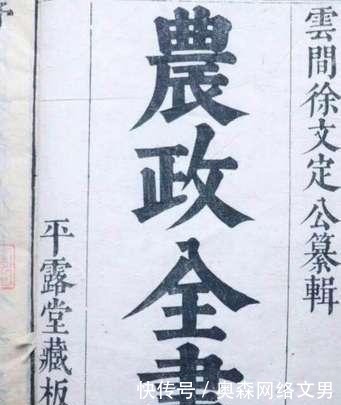 雲間徐文定公纂輯
農政全書
平露堂藏板
快传号/奥森网络文男